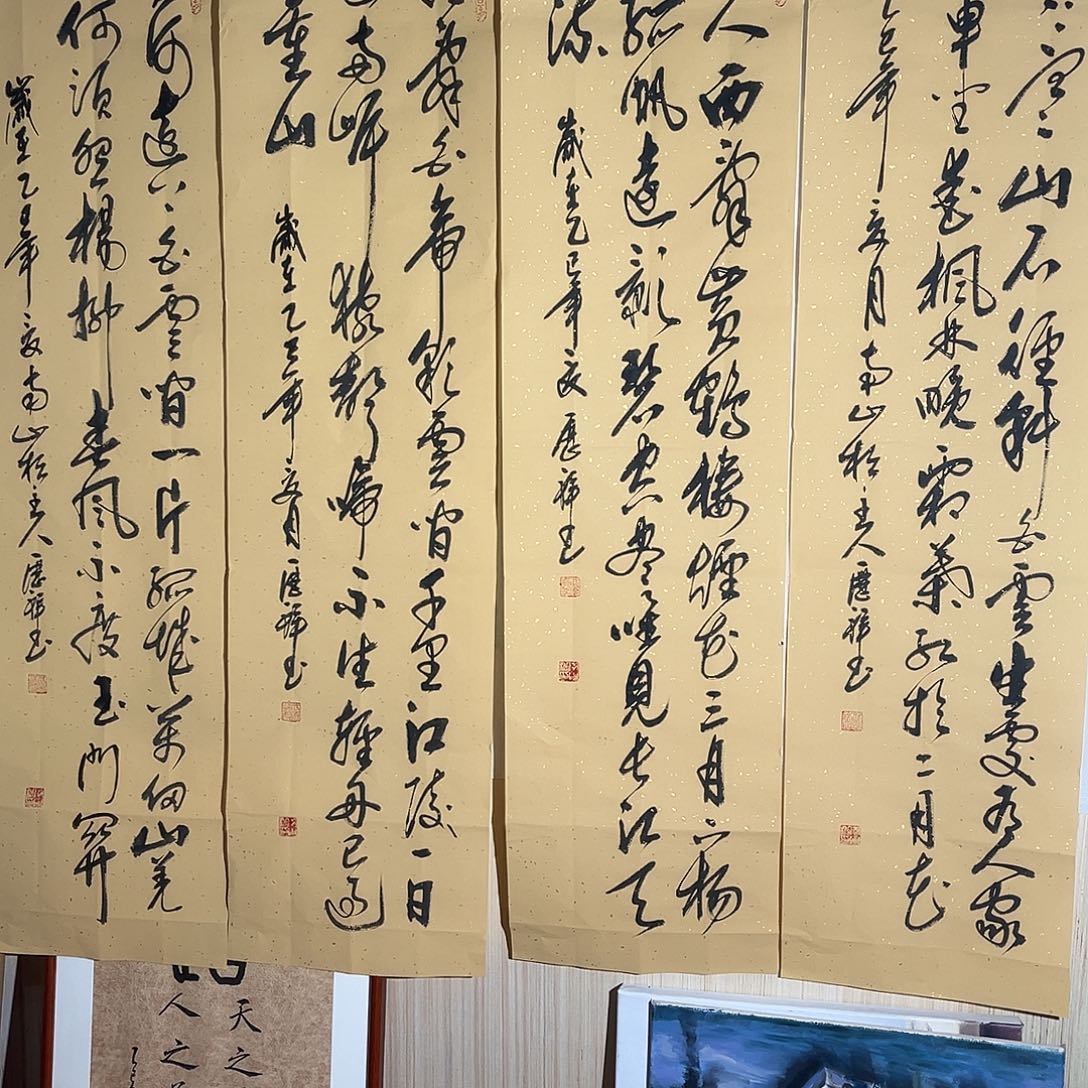 寒山石徑斜白雲生處有人家
車坐愛楓林晚霜葉紅於二月花
巳年夏月南山松主人
人西辭黃鶴樓煙花三月下揚
孤帆遠影碧空盡唯見長江天
流 歲在乙巳年夏
辭白帝彩雲間千里江陵一日
兩岸猿聲啼不住輕舟已過
重山 歲在乙巳年夏月
河遠上白雲間一片孤城萬仞山羌
何須怨楊柳春風不度玉門關
歲在乙巳年夏南山松主人
天之
人之